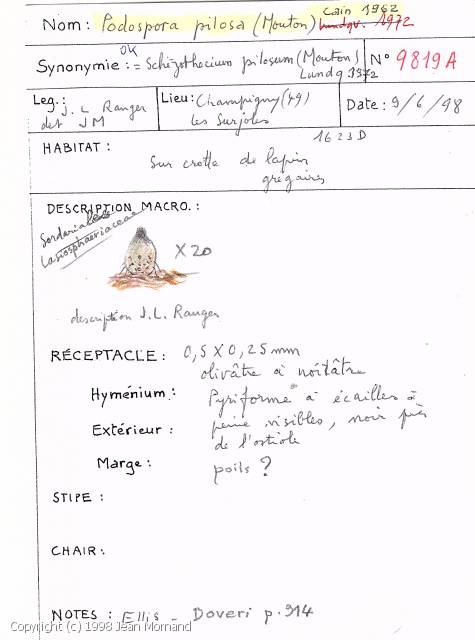 Cain 1962
Nom : Podospora pilosa (Mouton) Lundqv. 1972
OK
Synonymie : = Schizothecium pilosum (Mouton) N° 9819A
Lundq 1972
Leg. : J. L Ranger Lieu : Champigny (49) Date : 9/6/98
det JM les Surjoles
1623D
HABITAT :
Sur crotte de lapin
grégaires
DESCRIPTION MACRO. :
Sordariales
Lasiosphaeriaceae
X 20
description J.L. Ranger
RÉCEPTACLE : 0,5 X 0,25 mm
olivâtre à noirâtre
Hyménium : Pyriforme à écailles à
Extérieur : peine visibles, noir près
de l'ostiole
Marge : poils ?
STIPE :
CHAIR :
NOTES : Ellis - Doveri p. 914
Copyright (c) 1998 Jean Mornand